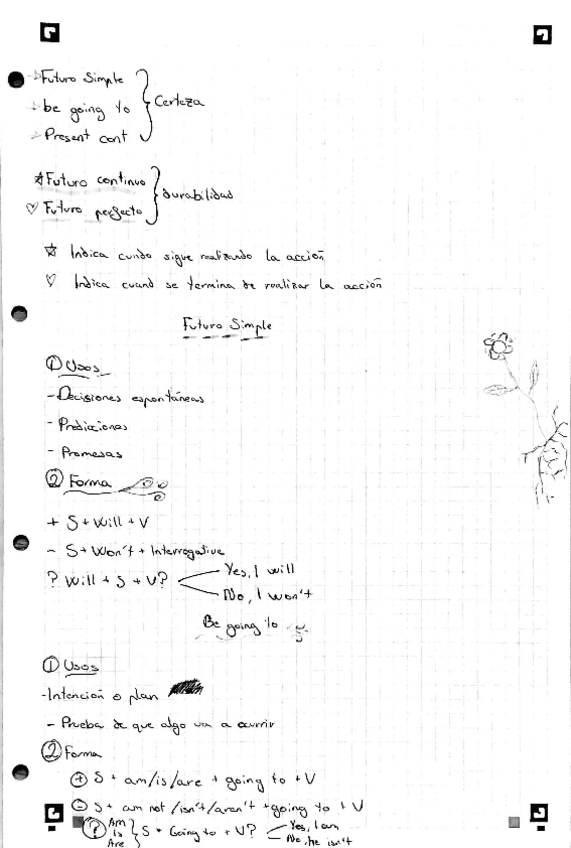 Futuro Simple
be going to
Present cont
Certeza
☆ Futuro continuo
♡ Futuro perfecto
durabilidad
☆ Indica cundo sigue realizando la acción
♡ Indica cuand se termina de realizar la acción
Futuro Simple
① Usos
- Decisiones espontáneas
- Predicciones
- Promesas
② Forma
+ S + Will + V
- S + Won't + Interrogative
? Will + S + V?
Yes, I will
No, I won't
Be going to
① Usos
- Intención o plan
- Prueba de que algo va a ocurrir
② Forma
⊕ S + am/is/are + going to + V
⊖ S + am not /isn't/aren't + going to + V
? Am Is Are } S + Going to + V?
Yes, I am
No, he isn't